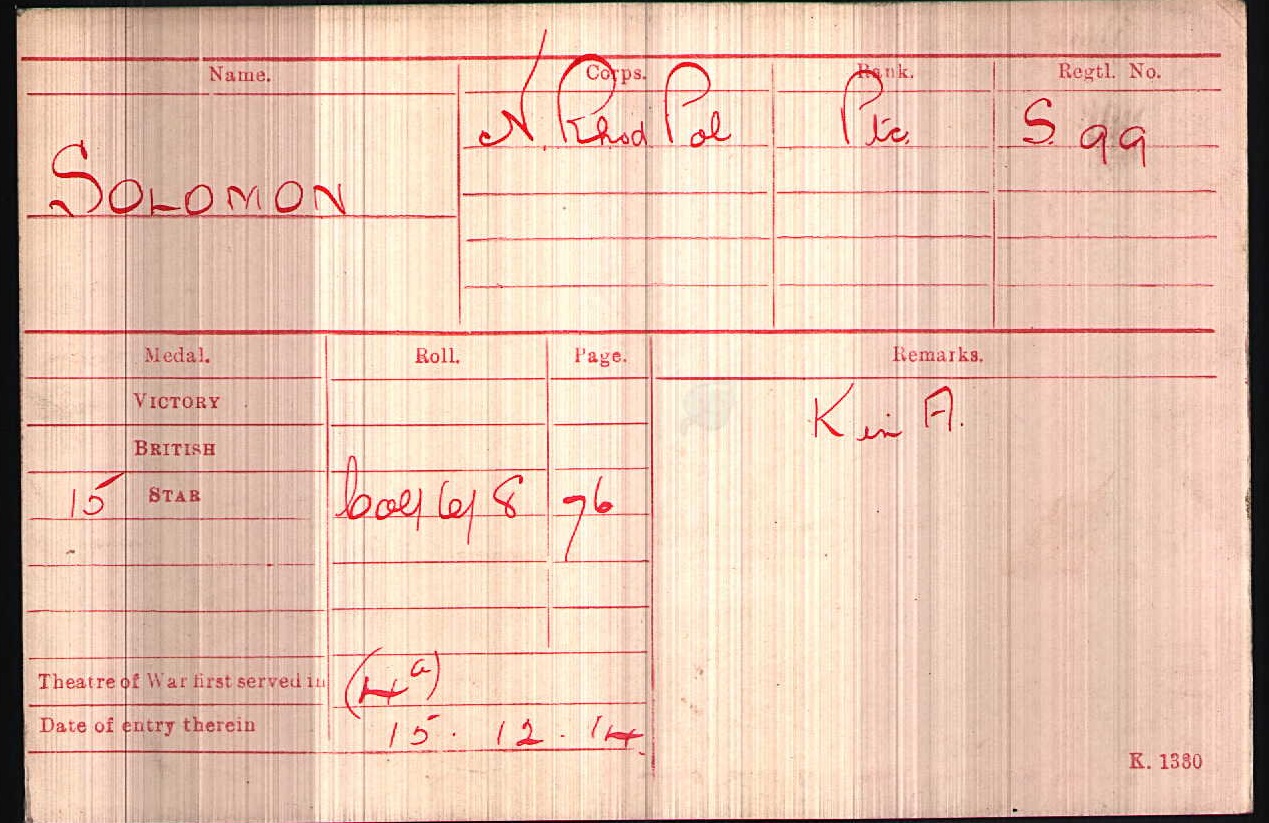 Name. Corps. Rank. Regtl. No.
SOLOMON N. Rhod Pol Pte. S. 99
Medal. Roll. Page. Remarks.
VICTORY K in A.
BRITISH
15 STAR 76
Theatre of War first served in (4a)
Date of entry therein 15. 12. 14.
K. 1380